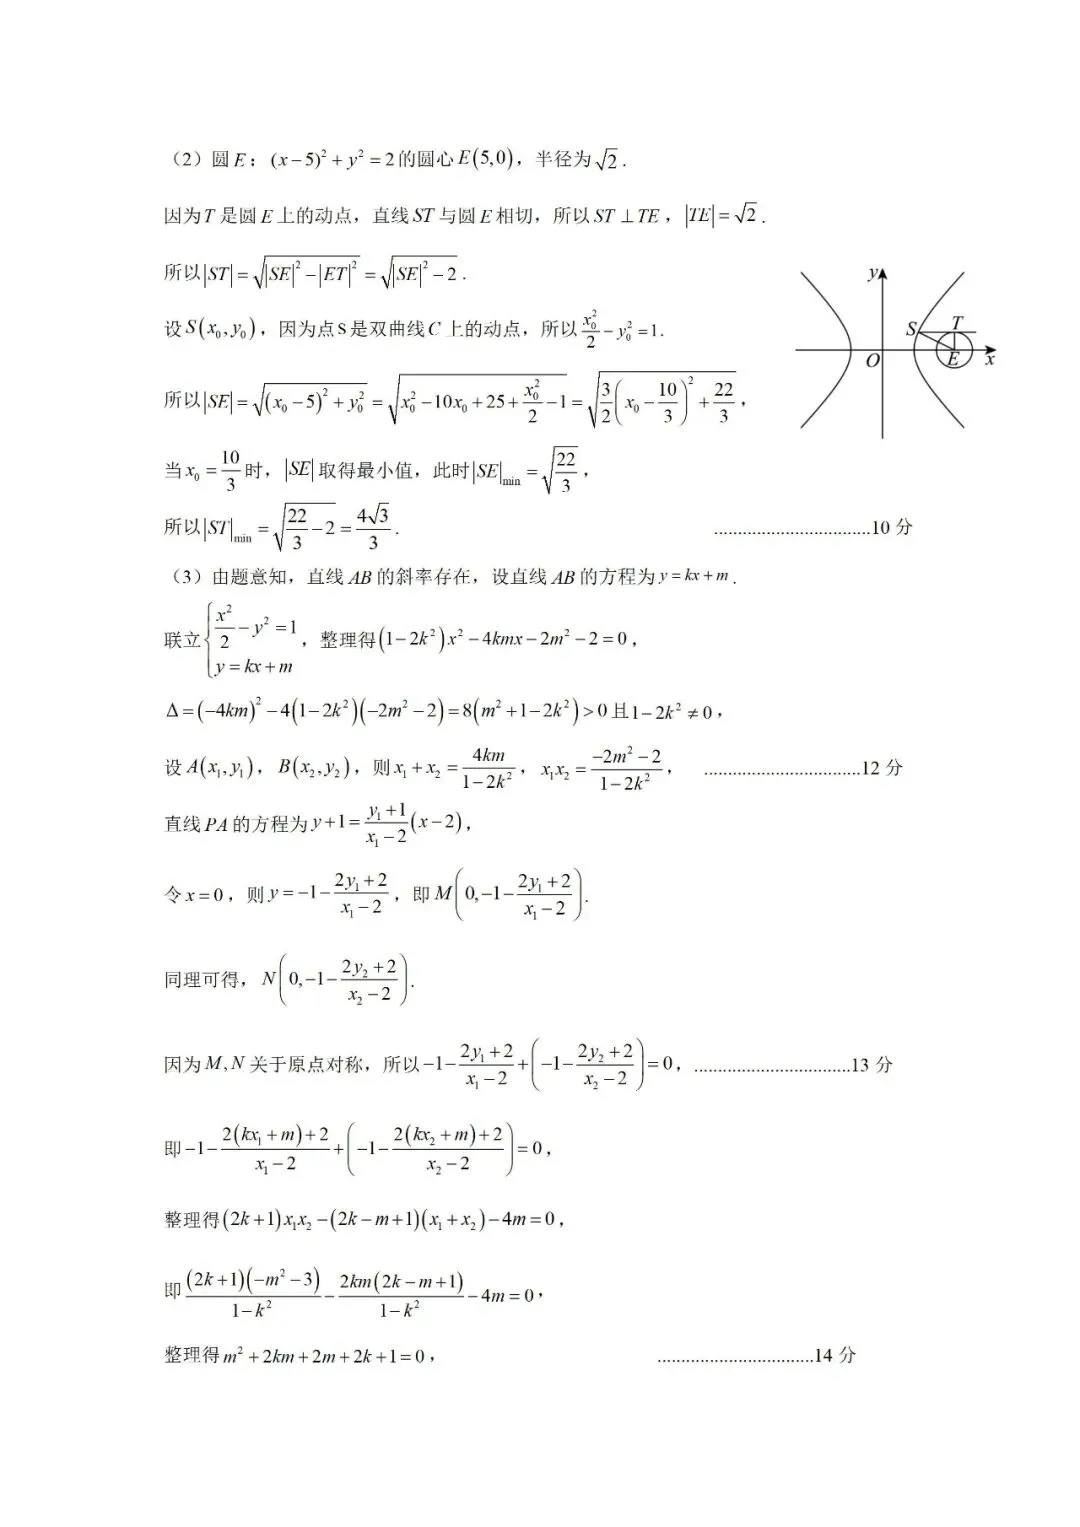 （2）圆 E：(x−5)²+y²=2的圆心E(5,0)，半径为√2.
因为T是圆E上的动点，直线ST与圆E相切，所以ST⊥TE，|TE|=√2.
所以|ST|=√(|SE|²−|ET|²)=√(|SE|²−2).
设S(x₀,y₀)，因为点S是双曲线C上的动点，所以x₀²/2−y₀²=1.
所以|SE|=√((x₀−5)²+y₀²)=√(x₀²−10x₀+25+x₀²/2−1)=√(3/2(x₀−10/3)²+22/3)，
当x₀=10/3时，|SE|取得最小值，此时|SE|min=√(22/3)，
所以|ST|min=√(22/3−2)=4√3/3. .................................10 分
y
S
T
O
E
x
（3）由题意知，直线AB的斜率存在，设直线AB的方程为y=kx+m.
联立{x²/2−y²=1, y=kx+m，整理得(1−2k²)x²−4kmx−2m²−2=0，
Δ=(−4km)²−4(1−2k²)(−2m²−2)=8(m²+1−2k²)>0且1−2k²≠0，
设A(x₁,y₁)，B(x₂,y₂)，则x₁+x₂=4km/(1−2k²)，x₁x₂=(−2m²−2)/(1−2k²)， .................................12 分
直线PA的方程为y+1=(y₁+1)/(x₁−2)(x−2)，
令x=0，则y=−1−(2y₁+2)/(x₁−2)，即M(0,−1−(2y₁+2)/(x₁−2)).
同理可得，N(0,−1−(2y₂+2)/(x₂−2)).
因为M,N关于原点对称，所以−1−(2y₁+2)/(x₁−2)+(−1−(2y₂+2)/(x₂−2))=0，.................................13 分
即−1−(2(kx₁+m)+2)/(x₁−2)+(−1−(2(kx₂+m)+2)/(x₂−2))=0，
整理得(2k+1)x₁x₂−(2k−m+1)(x₁+x₂)−4m=0，
即(2k+1)(−m²−3)/(1−k²)−2km(2k−m+1)/(1−k²)−4m=0，
整理得m²+2km+2m+2k+1=0， .................................14 分